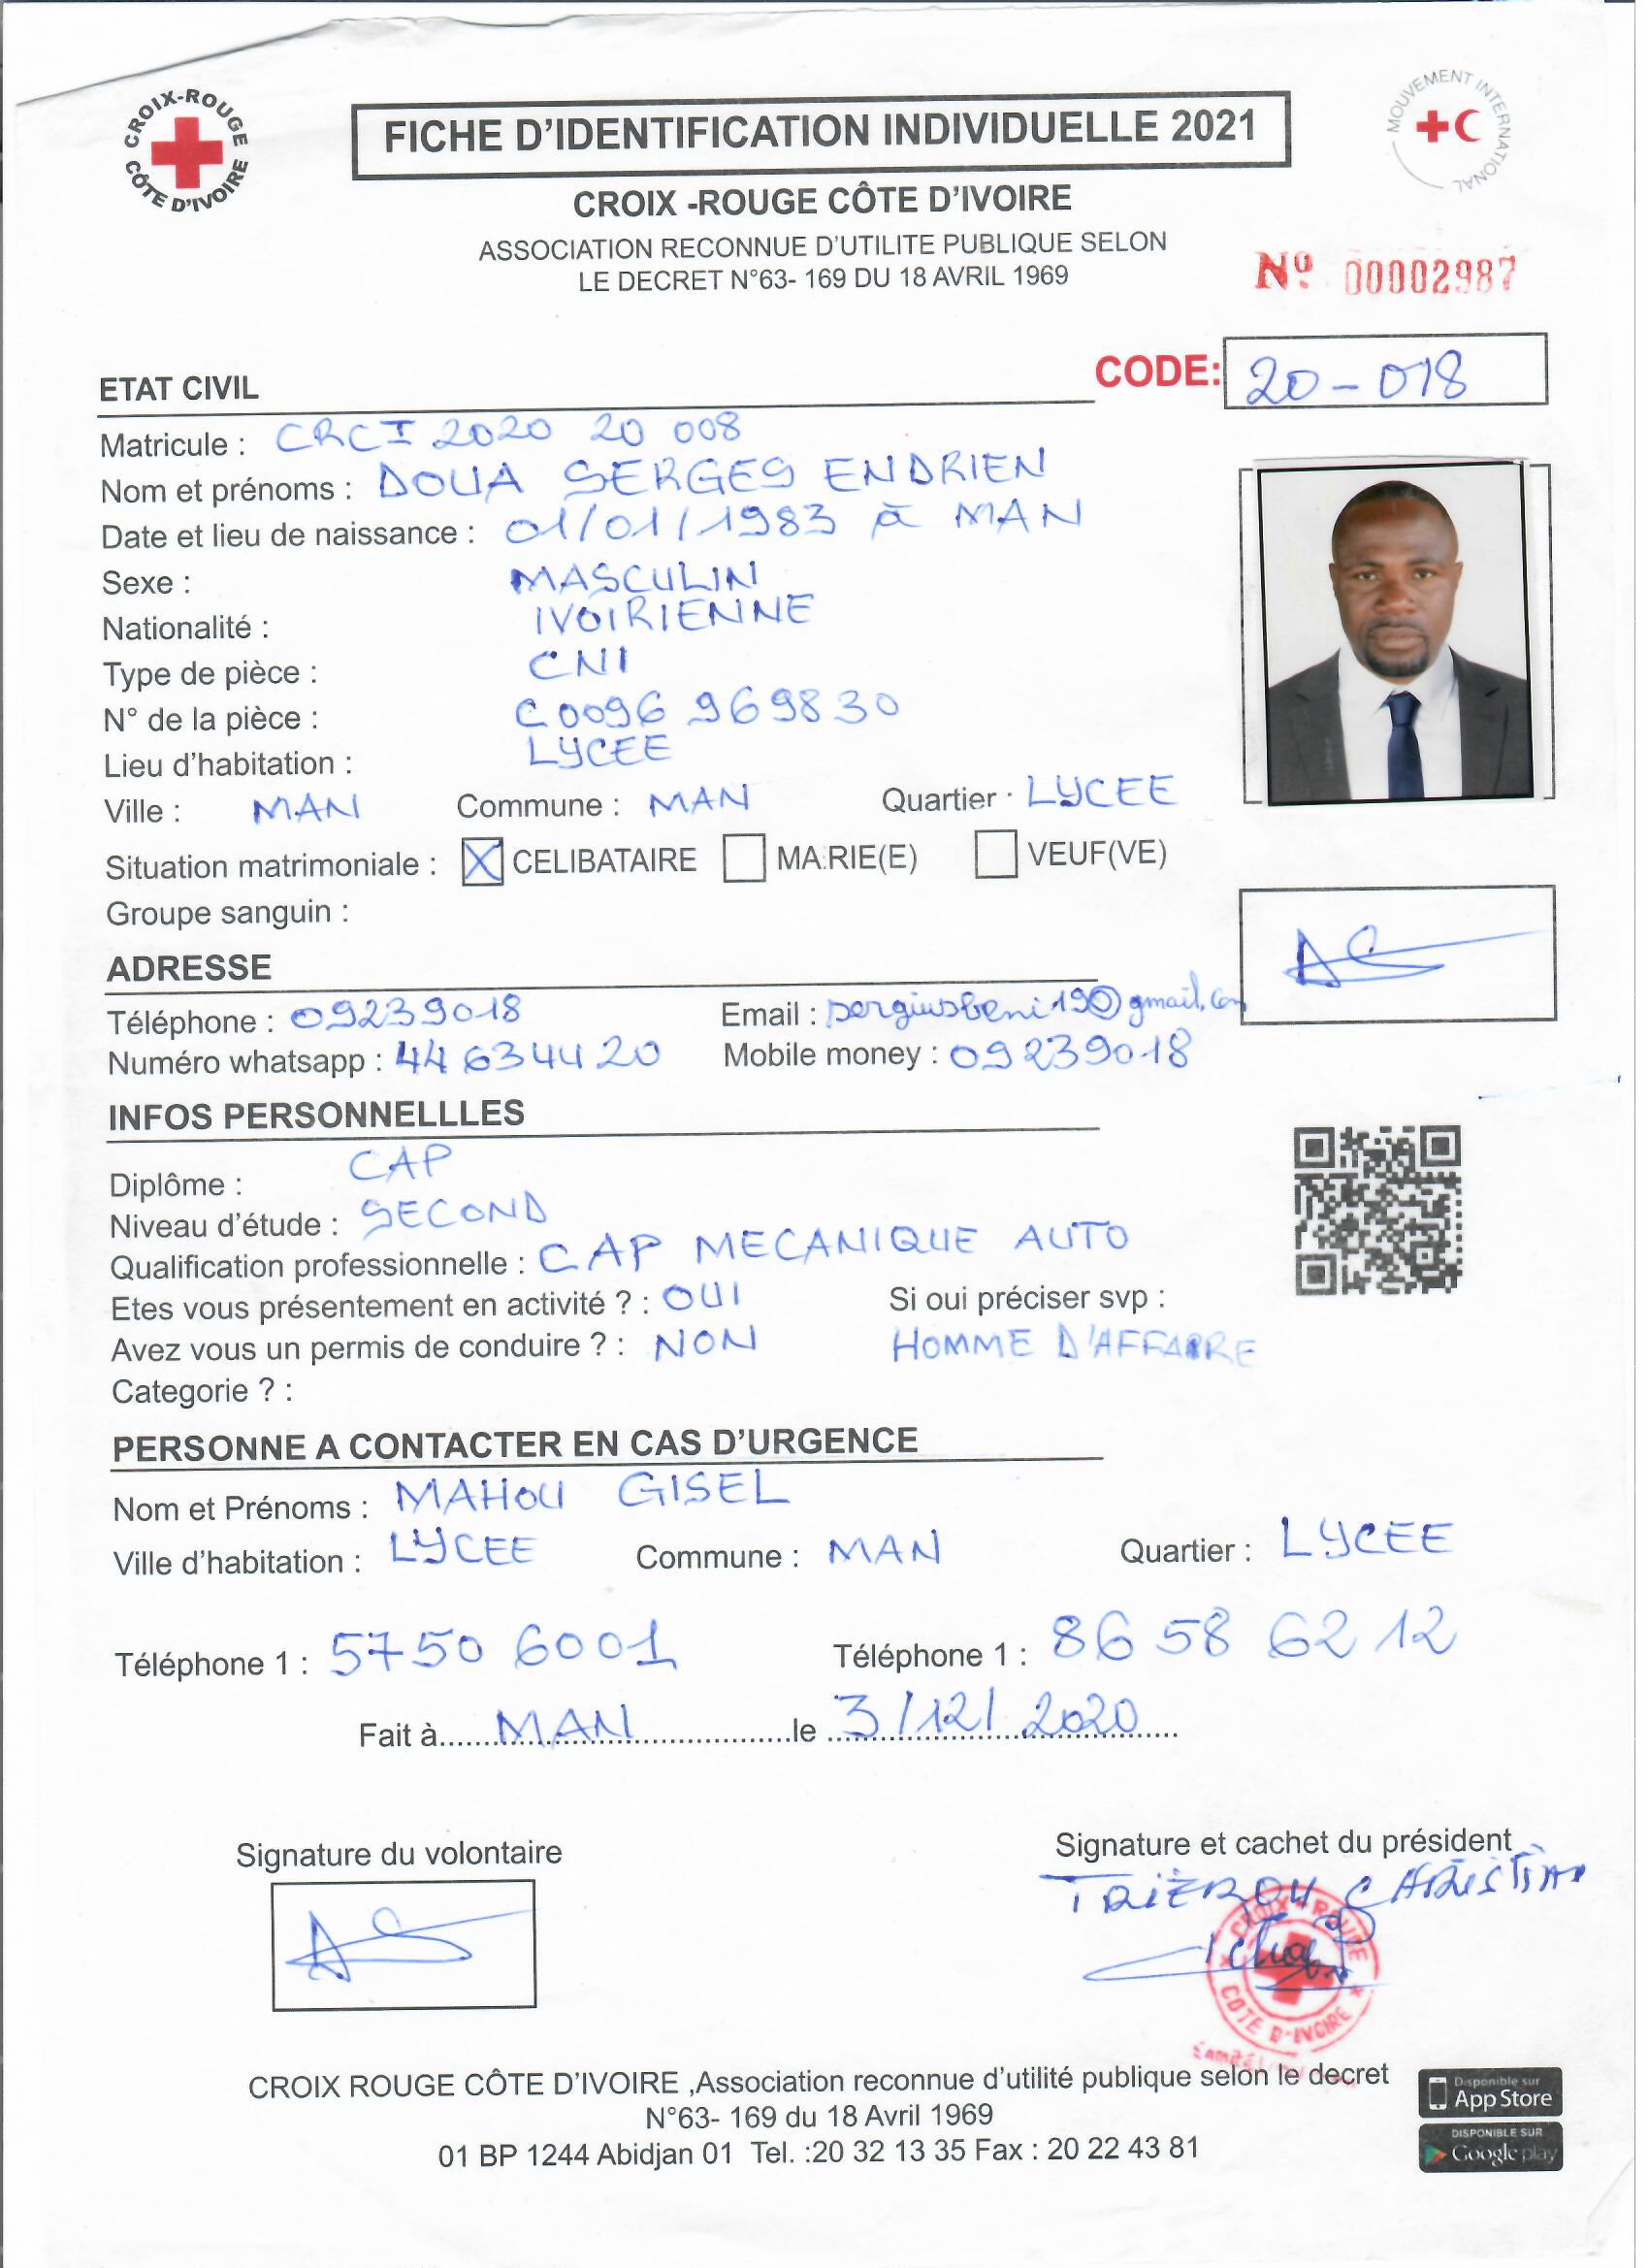 CROIX-ROUGE CÔTE D'IVOIRE
MOUVEMENT INTERNATIONAL
FICHE D'IDENTIFICATION INDIVIDUELLE 2021
CROIX -ROUGE CÔTE D'IVOIRE
ASSOCIATION RECONNUE D'UTILITE PUBLIQUE SELON
LE DECRET N°63- 169 DU 18 AVRIL 1969
Nº 00002987
CODE: 20-018
ETAT CIVIL
Matricule : CRCI 2020 20 008
Nom et prénoms : DOUA SERGES ENDRIEN
Date et lieu de naissance : 01/01/1983 à MAN
Sexe : MASCULIN
Nationalité : IVOIRIENNE
Type de pièce : CNI
N° de la pièce : C0096 969830
Lieu d'habitation : LYCEE
Ville : MAN Commune : MAN Quartier : LYCEE
Situation matrimoniale : X CELIBATAIRE MARIE(E) VEUF(VE)
Groupe sanguin :
ADRESSE
Téléphone : 09239018 Email : sergiusbeni19@gmail.com
Numéro whatsapp : 44 634420 Mobile money : 09239018
INFOS PERSONNELLLES
Diplôme : CAP
Niveau d'étude : SECOND
Qualification professionnelle : CAP MECANIQUE AUTO
Etes vous présentement en activité ? : OUI Si oui préciser svp :
Avez vous un permis de conduire ? : NON HOMME D'AFFAIRE
Categorie ? :
PERSONNE A CONTACTER EN CAS D'URGENCE
Nom et Prénoms : MAHOU GISEL
Ville d'habitation : LYCEE Commune : MAN Quartier : LYCEE
Téléphone 1 : 5750 6001 Téléphone 1 : 86 58 62 12
Fait à MAN le 3/12/2020
Signature du volontaire
Signature et cachet du président
CHRISTIAN
CROIX-ROUGE CÔTE D'IVOIRE
CROIX ROUGE CÔTE D'IVOIRE ,Association reconnue d'utilité publique selon le decret
N°63- 169 du 18 Avril 1969
01 BP 1244 Abidjan 01 Tel. :20 32 13 35 Fax : 20 22 43 81
Disponible sur
App Store
DISPONIBLE SUR
Google play